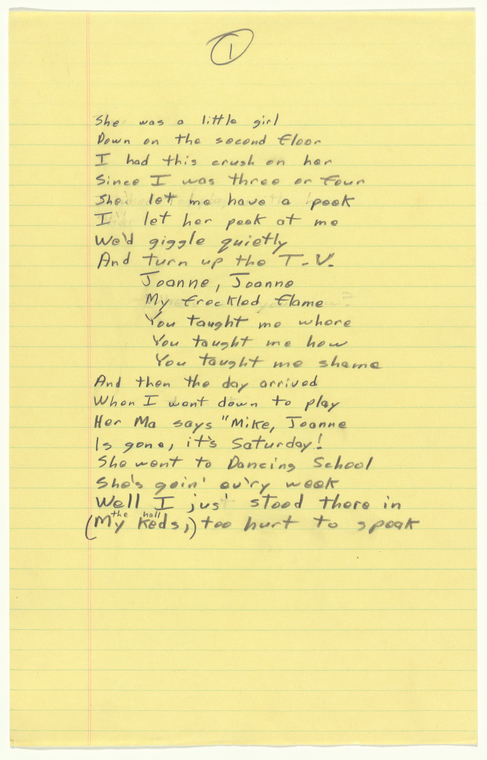 1
She was a little girl
Down on the second floor
I had this crush on her
Since I was three or four
She let me have a peek
I let her peek at me
We'd giggle quietly
And turn up the T.V.
Joanne, Joanne
My freckled flame
You taught me where
You taught me how
You taught me shame
And then the day arrived
When I went down to play
Her Ma says "Mike, Joanne
Is gone, it's Saturday!
She went to Dancing School
She's goin' ev'ry week
Well I jus' stood there in
the hall
(My Keds,) too hurt to speak